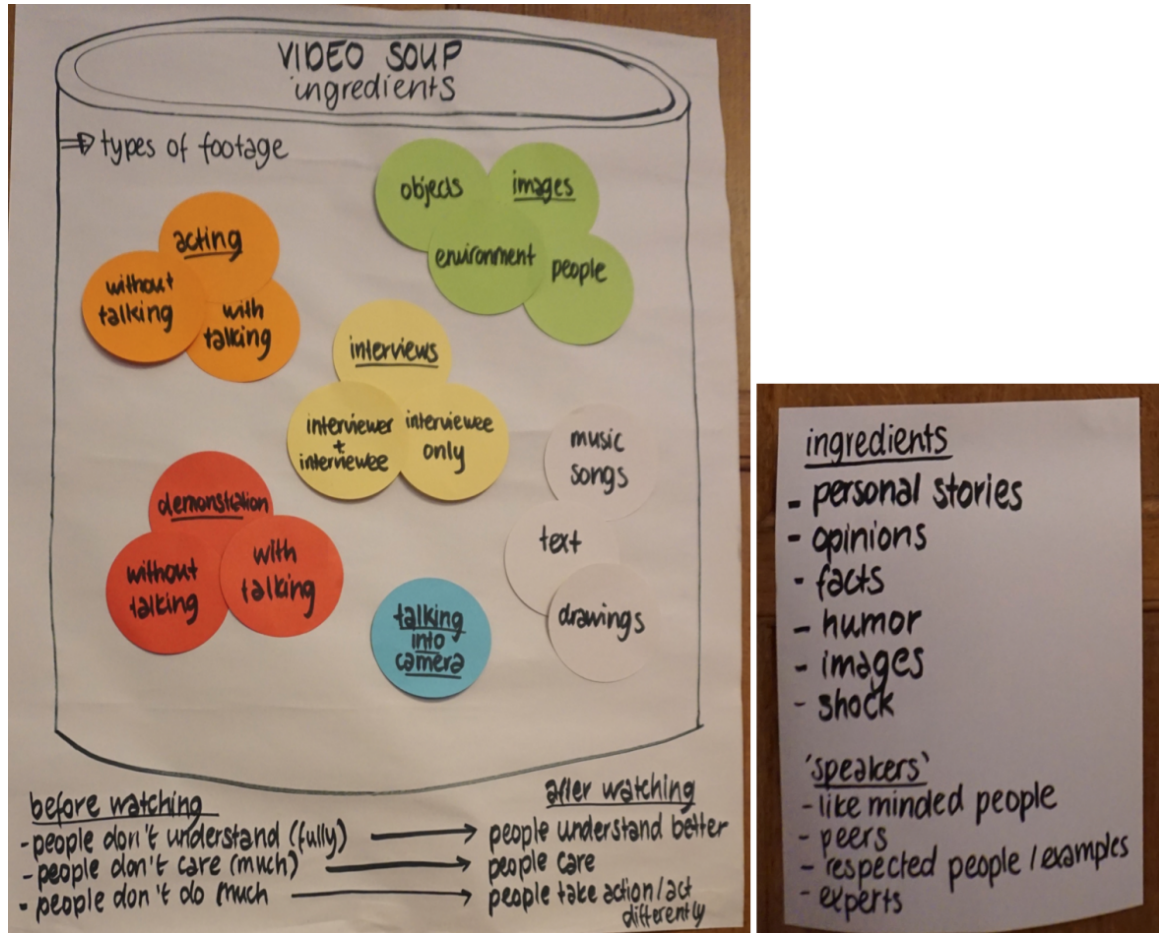 VIDEO SOUP
ingredients
types of footage
objects
images
environment
people
acting
without
talking
with
talking
interviews
interviewer
+
interviewee
interviewee
only
music
songs
text
drawings
demonstration
without
talking
with
talking
talking
into
camera
before watching
- people don't understand (fully)
- people don't care (much)
- people don't do much
after watching
people understand better
people care
people take action/act
differently
ingredients
- personal stories
- opinions
- facts
- humor
- images
- shock
'speakers'
- like minded people
- peers
- respected people/examples
- experts